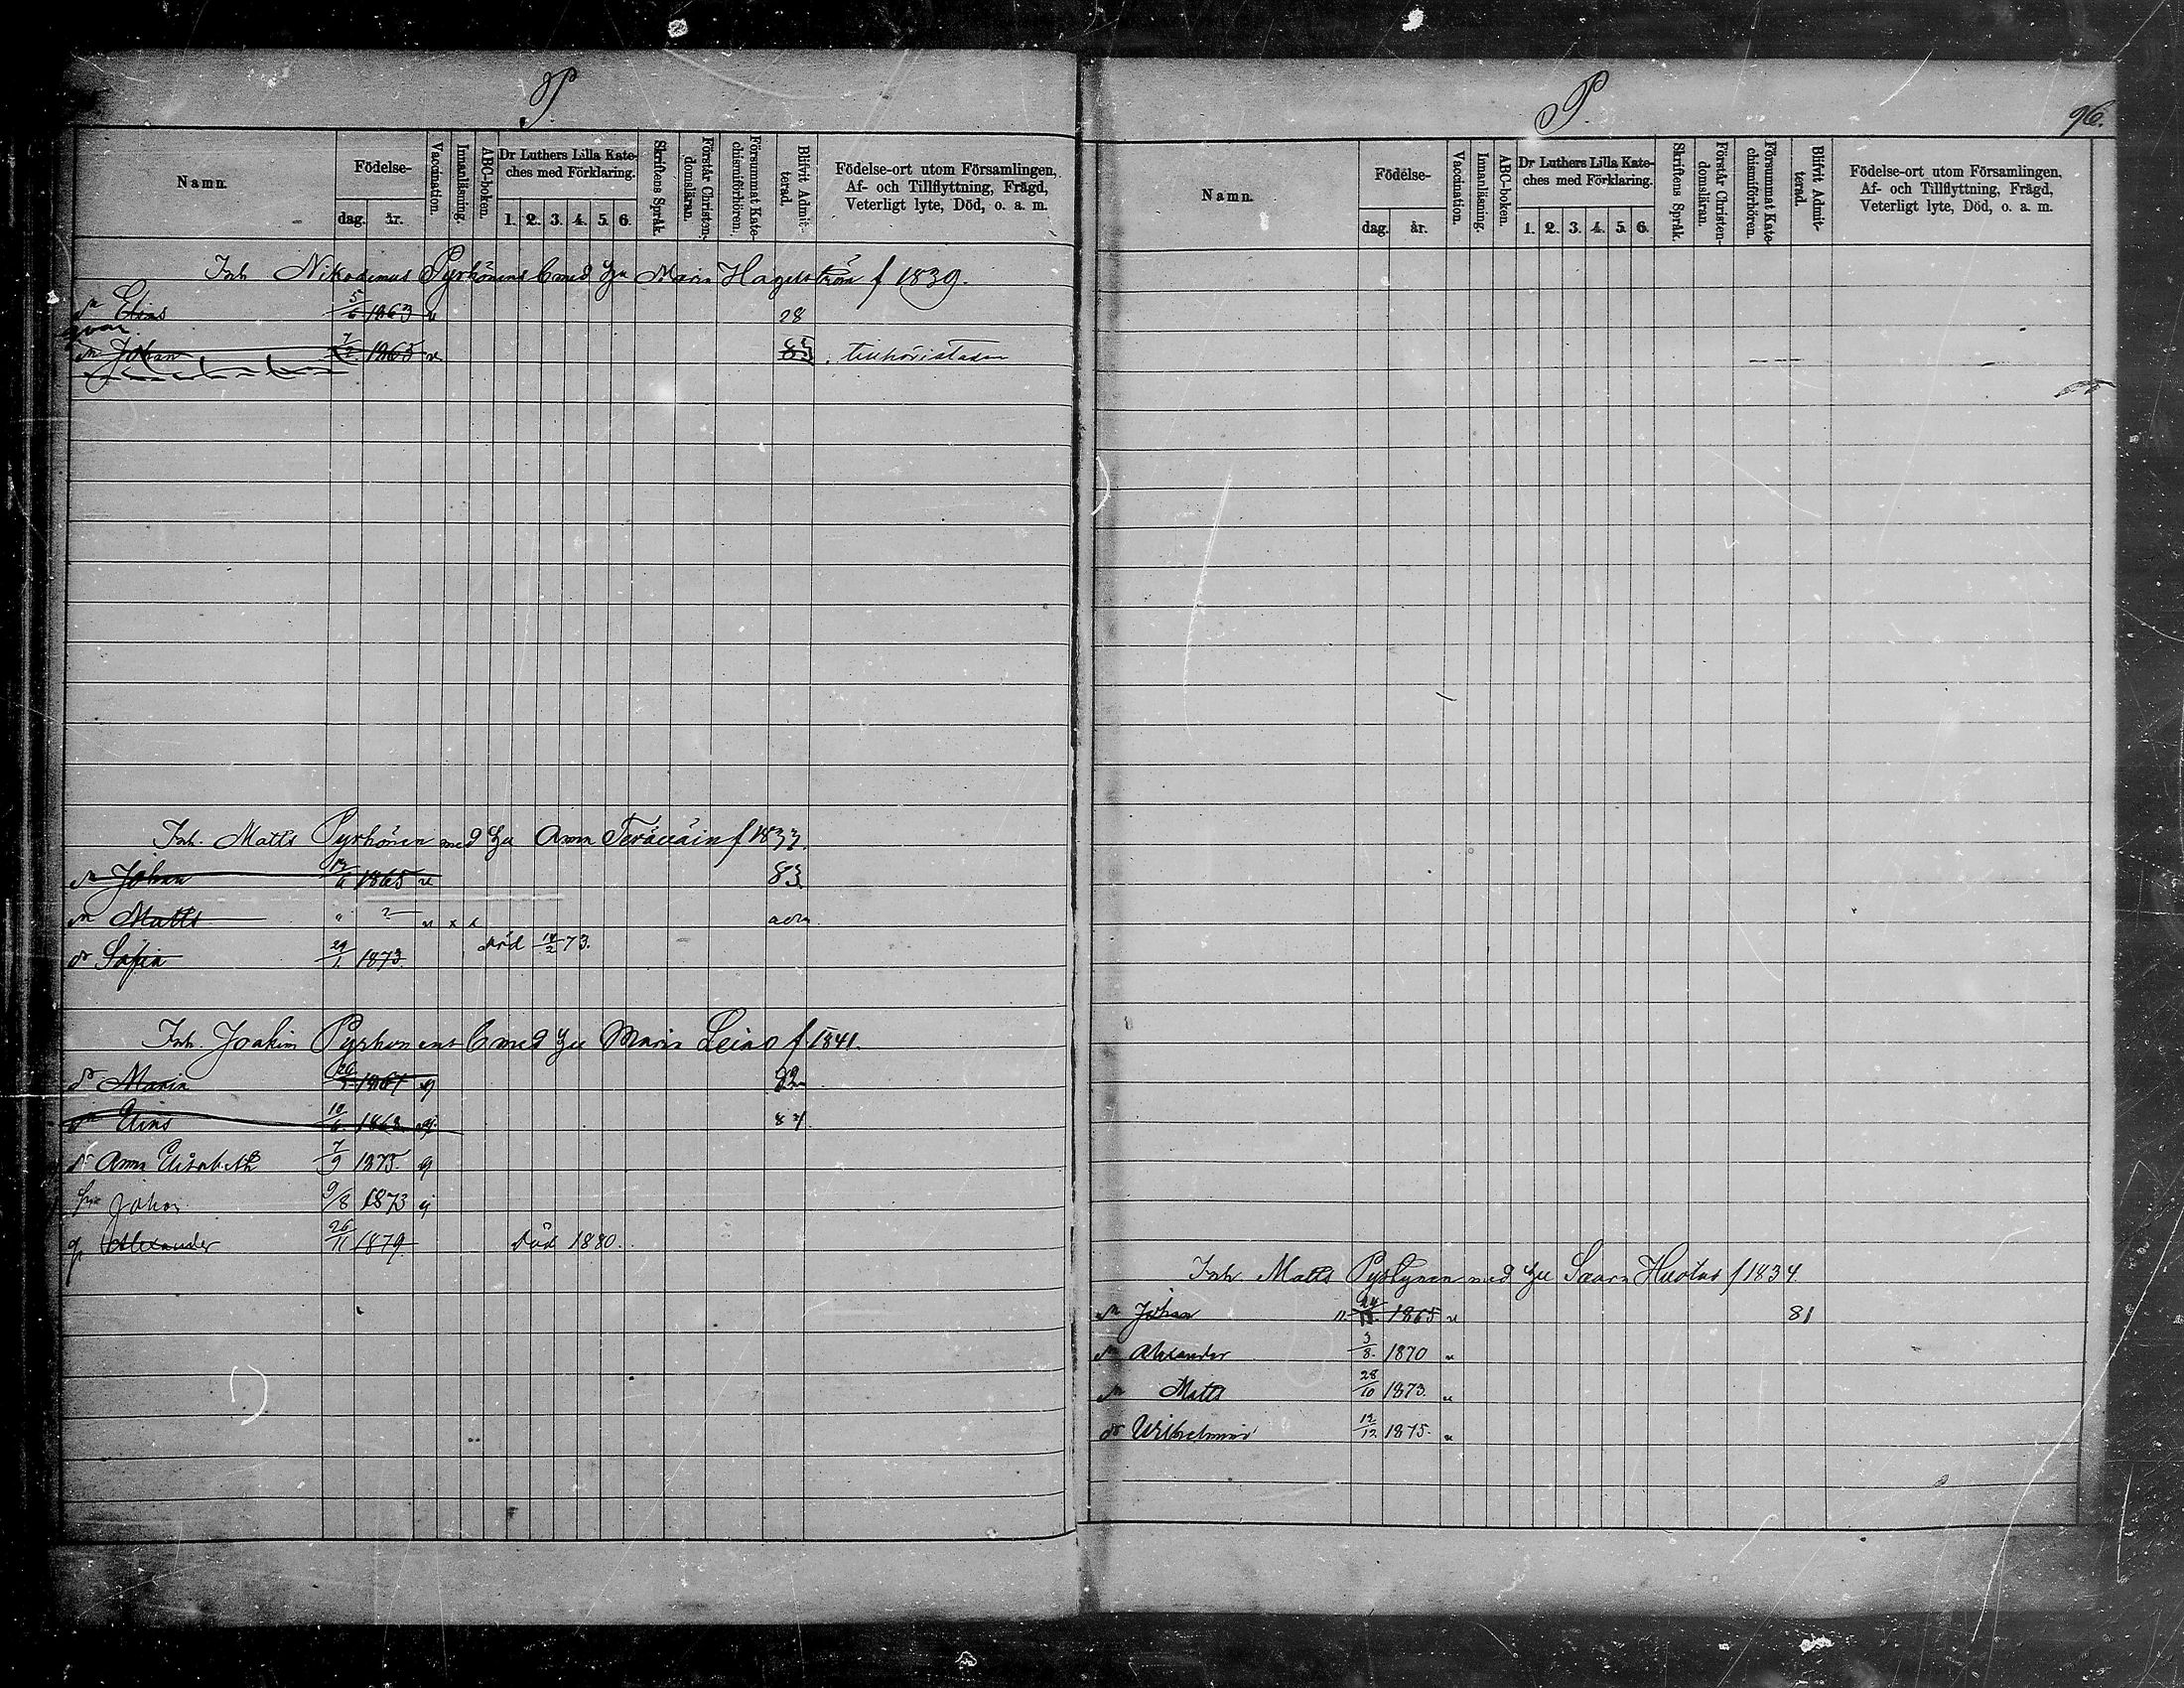 P.
Namn.
Födelse-
dag. år.
Vaccination.
Innanläsning.
ABC-boken.
Dr Luthers Lilla Kate-
ches med Förklaring.
1. 2. 3. 4. 5. 6.
Skriftens Språk.
Förstår Christen-
domsläran.
Försummat Kate-
chismiförhören.
Blifvit Admit-
terad.
Födelse-ort utom Församlingen,
Af- och Tillflyttning, Frägd,
Veterligt lyte, Död, o. a. m.
Inh Nikodemus Pyrhönens med Maria Hagelström f 1839.
Elias 5/6 1863 v 28
Johan 1865 v 83
Inh. Matts Pyrhönen med Anna f 1837.
Johan 1865 v 83
Matts " ? v x x adm.
dr Sofia 29/1. 1873. död 14/2 73.
Inh. Joakim med Maria Leino f. 1841.
dr Maria 1861 82
Elias 10/6 1863. 84.
dr Anna Elisabeth 7/9 1875.
Johan 9/8 1873
Alexander 26/11 1879. Död 1880.
P.
96.
Namn.
Födelse-
dag. år.
Vaccination.
Innanläsning.
ABC-boken.
Dr Luthers Lilla Kate-
ches med Förklaring.
1. 2. 3. 4. 5. 6.
Skriftens Språk.
Förstår Christen-
domsläran.
Försummat Kate-
chismiförhören.
Blifvit Admit-
terad.
Födelse-ort utom Församlingen,
Af- och Tillflyttning, Frägd,
Veterligt lyte, Död, o. a. m.
Inh. Matts med Saara f 1834.
Johan 1865 v 81
Alexander 3/8. 1870 v
Matts 28/10 1873. v
dr Wilhelmina 12/12. 1875. v